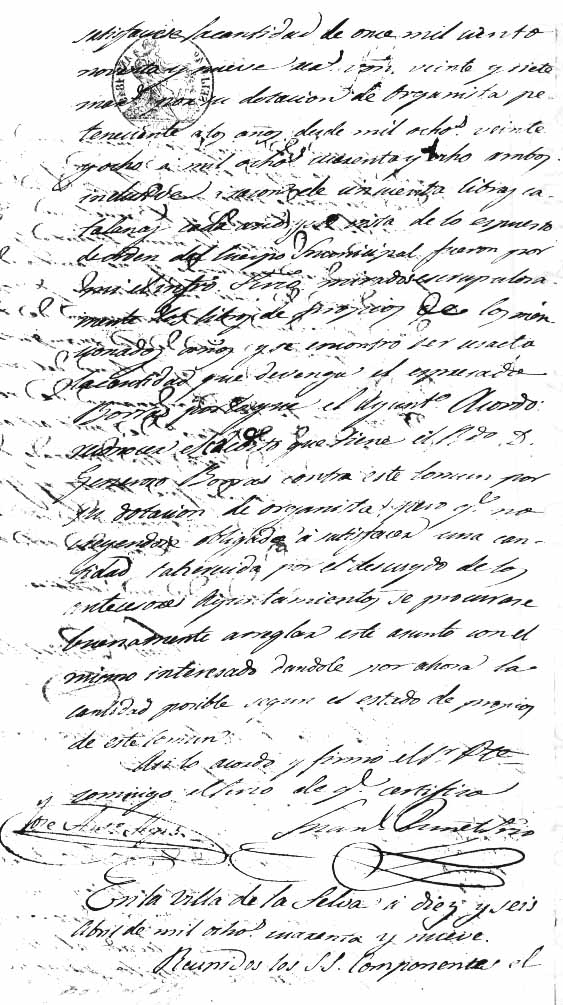 satisfaciese la cantidad de once mil ciento
noventa y nueve rea.^s v.^on veinte y siete
mar.^s por su dotacion de Organista pe-
teneciente a los años desde mil ocho.^s veinte
y ocho á mil ocho.^s cuarenta y ocho ambos
inclusive á razon de cincuenta libras ca-
talanas cada una, y en vista de lo espuesto
de orden del Cuerpo Municipal fueron por
mi el infro Srio mirados escrupulosa
mente los libros de propios de los men
cionados años y se encontró ser exacta
la cantidad que devenga el espresado
Borras por lo que el Ayunt.^o Acordó:
reconocer el credito que tiene el R.do D.
Geronimo Borras contra este Comun por
su dotacion de organista, pero q.^e no
creyendose obligado á satisfacer una can-
tidad tan crecida por el descuydo de los
antecesores Ayuntamientos se procurase
buenamente arreglar este asunto con el
mismo interesado dandole por ahora la
cantidad posible segun el estado de propios
de este Comun.
Asi lo acordó y firmo el S.^r Pte
conmigo el Srio de q.^e certifico
Juan Srio
En la Villa de la Selva á diez y seis
Abril de mil ocho.^s cuarenta y nueve.
Reunidos los SS. Componentes el